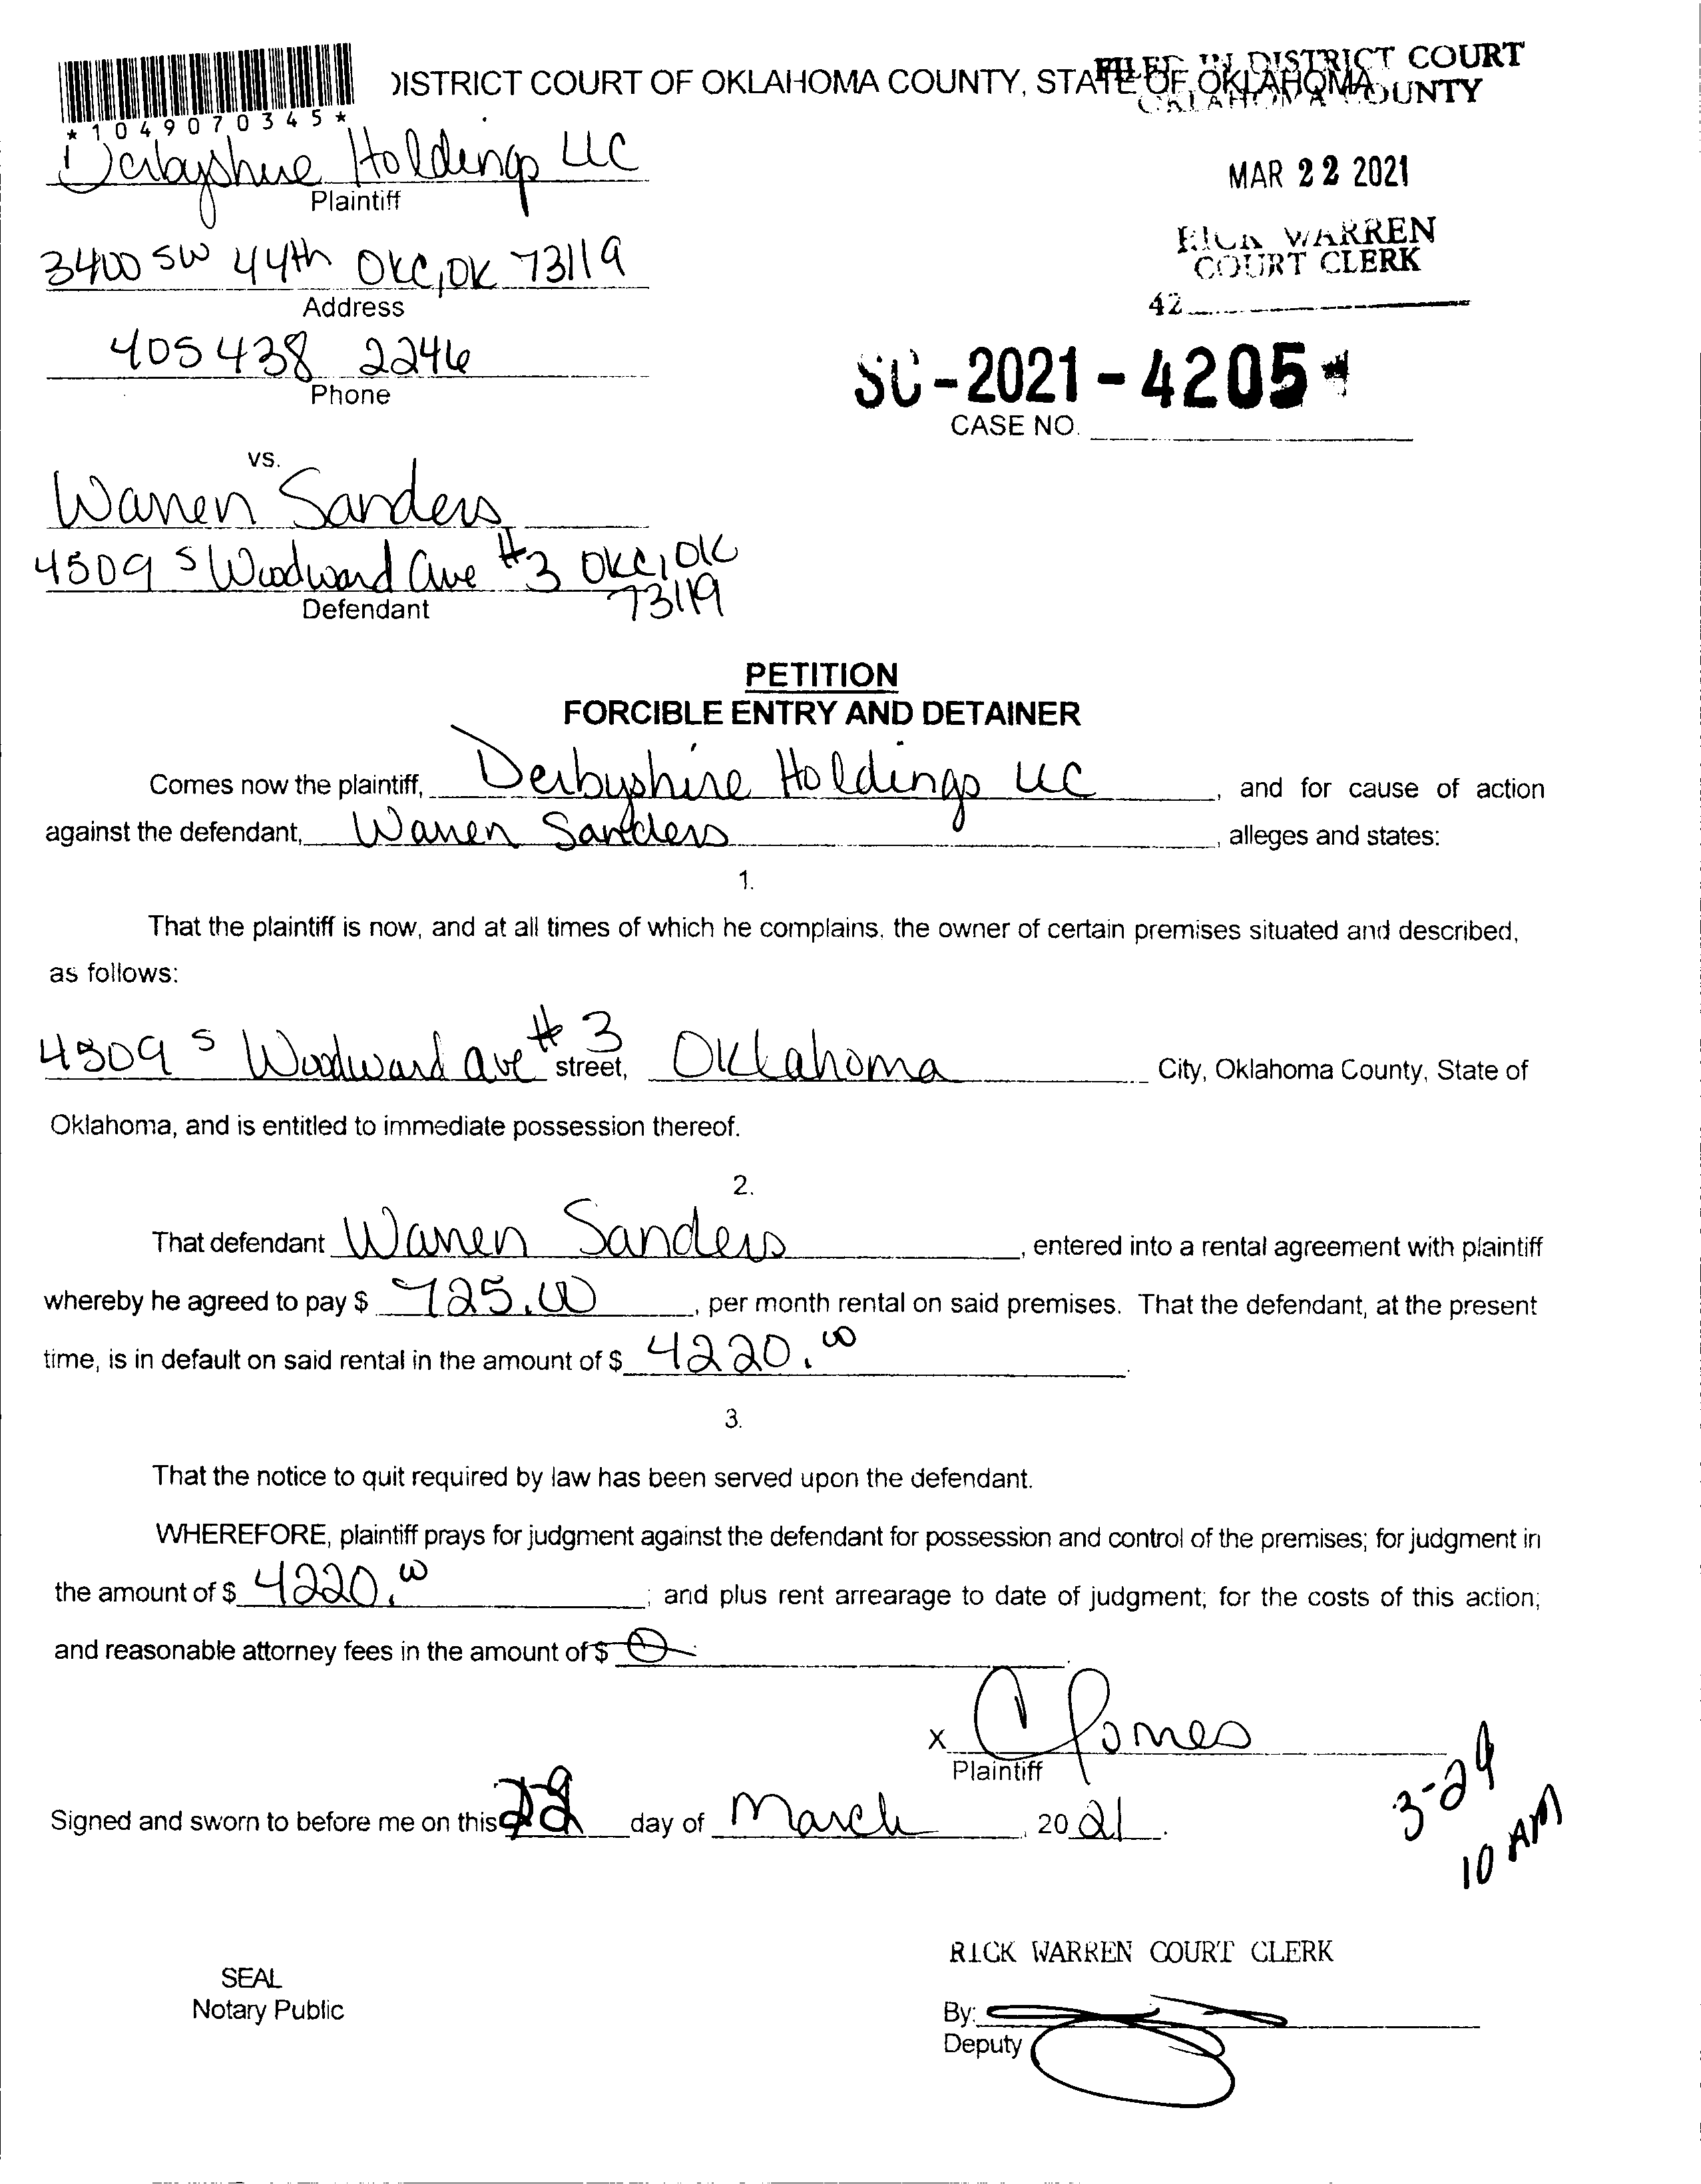 *1049070345*
DISTRICT COURT OF OKLAHOMA COUNTY, STATE OF OKLAHOMA
FILED IN DISTRICT COURT
OKLAHOMA COUNTY
MAR 22 2021
RICK WARREN
COURT CLERK
42
Derbyshire Holdings LLC
Plaintiff
3400 SW 44th OKC, OK 73119
Address
405 438 2246
Phone
SC-2021-4205
CASE NO.
vs.
Warren Sanders
4509 S Woodward Ave #3 OKC, OK
73119
Defendant
PETITION
FORCIBLE ENTRY AND DETAINER
Comes now the plaintiff, Derbyshire Holdings LLC, and for cause of action
against the defendant, Warren Sanders, alleges and states:
1.
That the plaintiff is now, and at all times of which he complains, the owner of certain premises situated and described,
as follows:
4509 S Woodward Ave #3 street, Oklahoma City, Oklahoma County, State of
Oklahoma, and is entitled to immediate possession thereof.
2.
That defendant Warren Sanders, entered into a rental agreement with plaintiff
whereby he agreed to pay $ 725.00, per month rental on said premises. That the defendant, at the present
time, is in default on said rental in the amount of $ 4220.00.
3.
That the notice to quit required by law has been served upon the defendant.
WHEREFORE, plaintiff prays for judgment against the defendant for possession and control of the premises; for judgment in
the amount of $ 4220.00; and plus rent arrearage to date of judgment; for the costs of this action;
and reasonable attorney fees in the amount of $ 0.
x C Jones
Plaintiff
Signed and sworn to before me on this 22 day of March, 2021.
3-29
10 AM
RICK WARREN COURT CLERK
SEAL
Notary Public
By:
Deputy